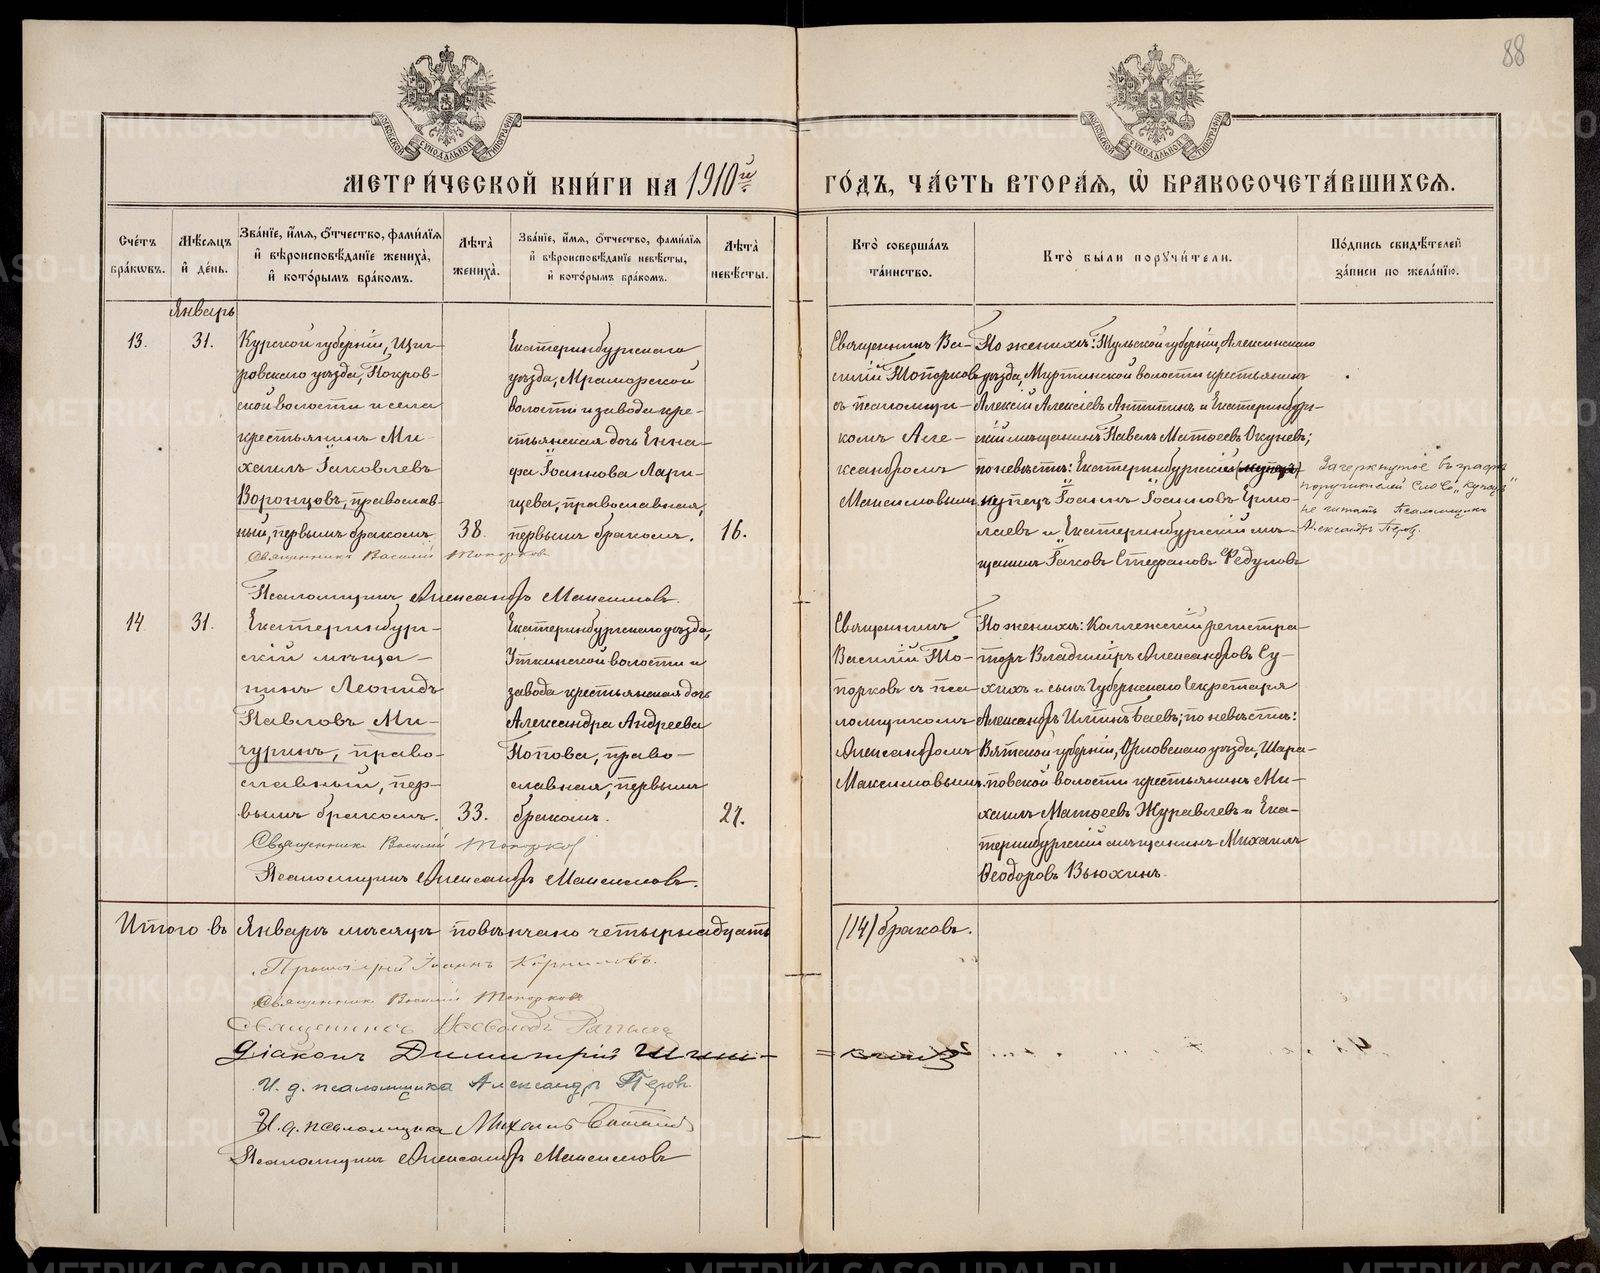 88
МЕТРИ́ЧЕСКОЙ КНИ́ГИ НА 1910й ГО́ДЪ, ЧА́СТЬ ВТОРА́Я, Ѿ БРАКОСОЧЕТА́ВШИХСЯ.
Сче́тъ бра́ковъ.
Мѣ́сяцъ и́ де́нь.
Зва́нїе, и́мя, ѻ́тчество, фами́лїя и́ вѣроисповѣ́данїе жениха̀, и́ кото́рымъ бра́комъ.
Лѣта̀ жениха̀.
Зва́нїе, и́мя, ѻ́тчество, фами́лїя и́ вѣроисповѣ́данїе невѣ́сты, и́ кото́рымъ бра́комъ.
Лѣта̀ невѣ́сты.
Кто̀ соверша́лъ та́инство.
Кто̀ бы́ли порꙋчи́тели.
По́дпись свидѣ́телей за́писи по жела́нїю.
Январь
13.
31.
Курской губерніи, Щиг-
ровскаго уѣзда, Покров-
ской волости и села
крестьянинъ Ми-
хаилъ Іаковлевъ
Воронцовъ, православ-
ный, первымъ бракомъ
38.
Екатеринбургскаго
уѣзда, Мраморской
волости и завода кре-
стьянская дочь Енна-
фа Іоаннова Лари-
цева, православная,
первымъ бракомъ.
16.
Священникъ Василій Топорковъ
Псаломщикъ Александръ Максимовъ.
Священникъ Ва-
силій Топорковъ
съ псаломщи-
комъ Але-
ксандромъ
Максимовымъ.
По женихѣ: Тульской губерніи, Алексинскаго
уѣзда, Миртинской волости крестьянинъ
Алексій Алексіевъ Антипинъ и Екатеринбург-
скій мѣщанинъ Павелъ Матѳеевъ Окуневъ;
по невѣстѣ: Екатеринбургскій (купецъ)
купецъ Іоаннъ Іоанновъ Ермо-
лаевъ и Екатеринбургскій мѣ-
щанинъ Іаковъ Стефановъ Федуловъ
Зачеркнутое въ графѣ
поручителей слово „купецъ“
не читать Псаломщикъ
Александръ Перов.
14
31.
Екатеринбург-
скій мѣща-
нинъ Леонидъ
Павловъ Ми-
чуринъ, право-
славный, пер-
вымъ бракомъ.
33.
Екатеринбургскаго уѣзда,
Уткинской волости и
завода крестьянская дочь
Александра Андреева
Попова, право-
славная, первымъ
бракомъ.
21.
Священникъ Василій Топорков
Псаломщикъ Александръ Максимовъ.
Священникъ
Василій То-
порковъ съ пса-
ломщикомъ
Александромъ
Максимовымъ.
По женихѣ: Коллежскій регистра-
торъ Владиміръ Александровъ Су-
хихъ и сынъ Губернскаго Секретаря
Александръ Баевъ; по невѣстѣ:
Вятской губерніи, Орловскаго уѣзда, Шара-
повской волости крестьянинъ Ми-
хаилъ Матѳеевъ Журавлевъ и Ека-
теринбургскій мѣщанинъ Михаилъ
Ѳеодоровъ Вьюхинъ.
Итого въ Январѣ мѣсяцѣ повѣнчано четырнадцать (14) браковъ.
Протоіерей Іоаннъ Корниловъ.
Священникъ Василій Топорковъ
Священникъ Всеволодъ
Діаконъ Димитрій
И. д. псаломщика Александръ Перов
И. д. псаломщика Михаилъ
Псаломщикъ Александръ Максимовъ